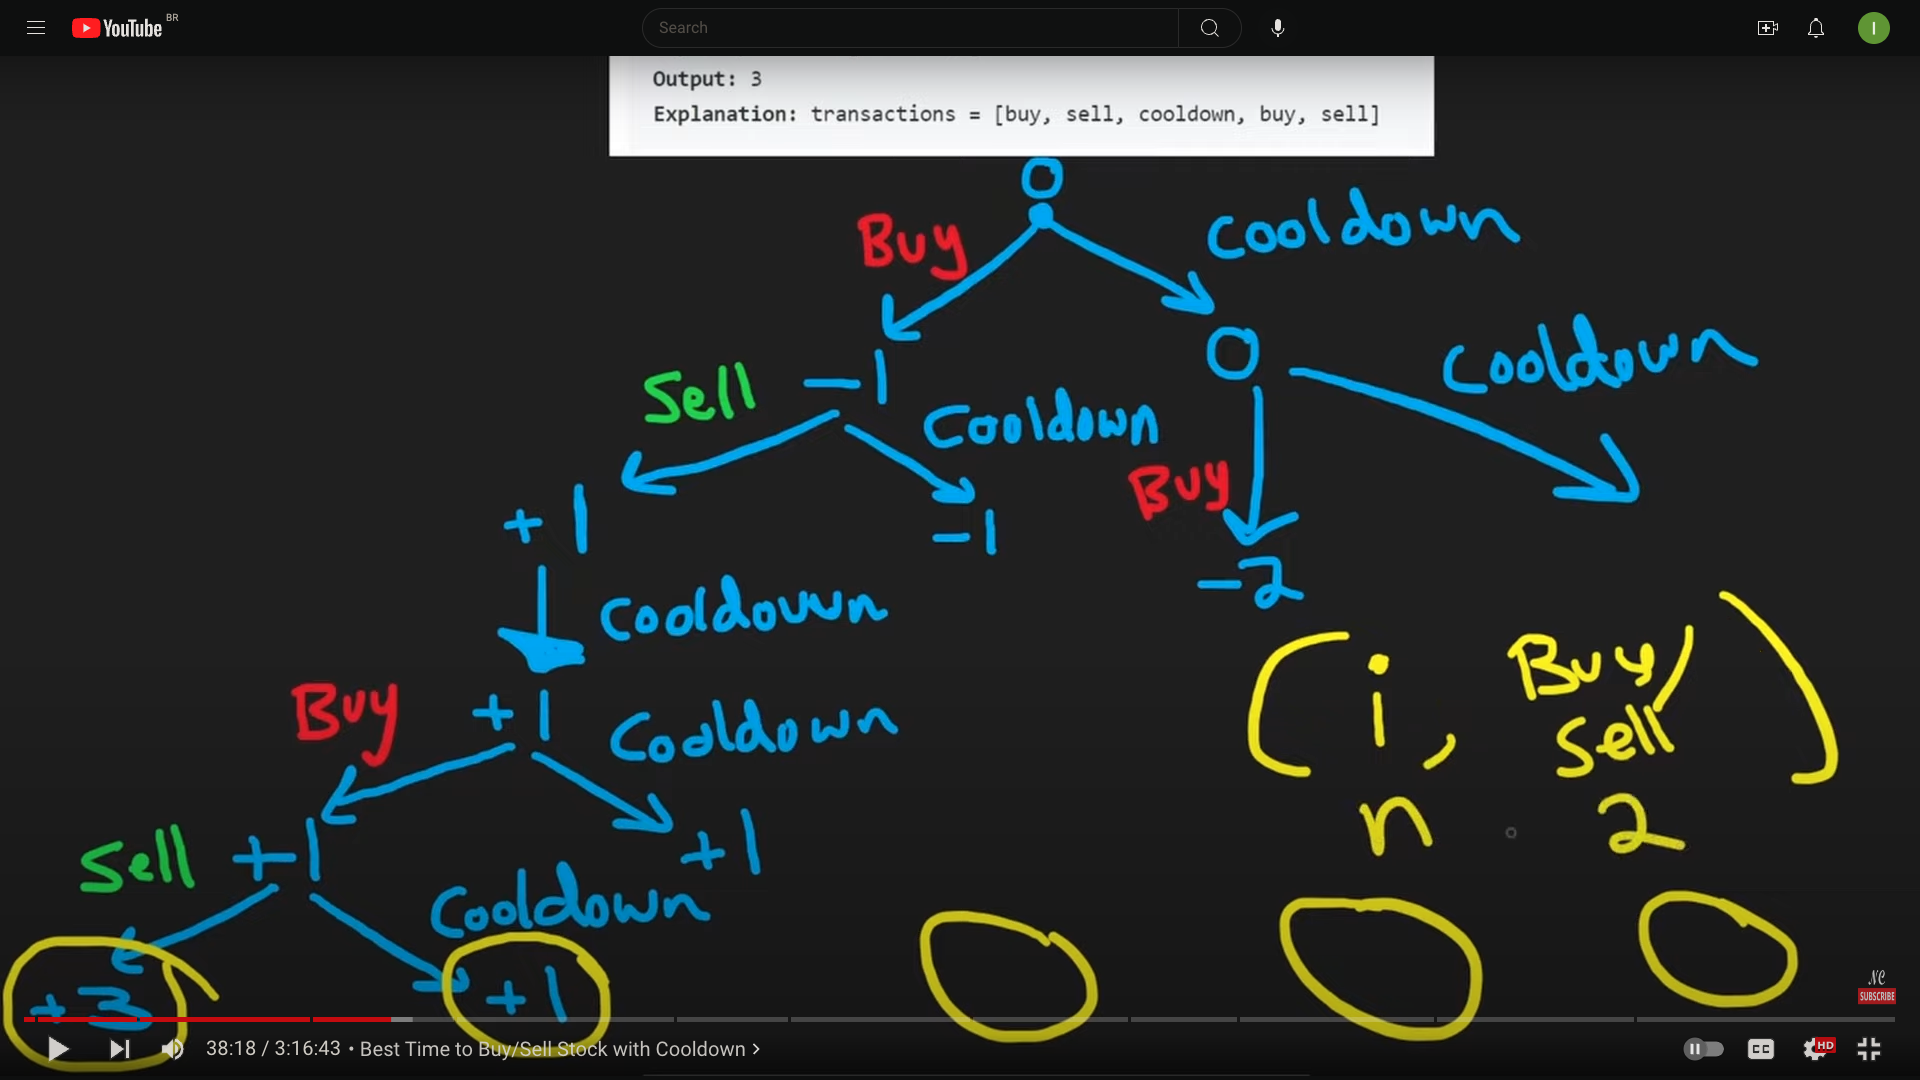 YouTube BR
Search
I
Output: 3
Explanation: transactions = [buy, sell, cooldown, buy, sell]
0
Buy
Cooldown
0
Cooldown
Sell
-1
Cooldown
Buy
+1
-1
-2
Cooldown
(i, Buy/
Sell)
Buy
+1
Cooldown
n
2
Sell
+1
+1
Cooldown
+3
+1
NC
SUBSCRIBE
38:18 / 3:16:43 • Best Time to Buy/Sell Stock with Cooldown >
CC
HD